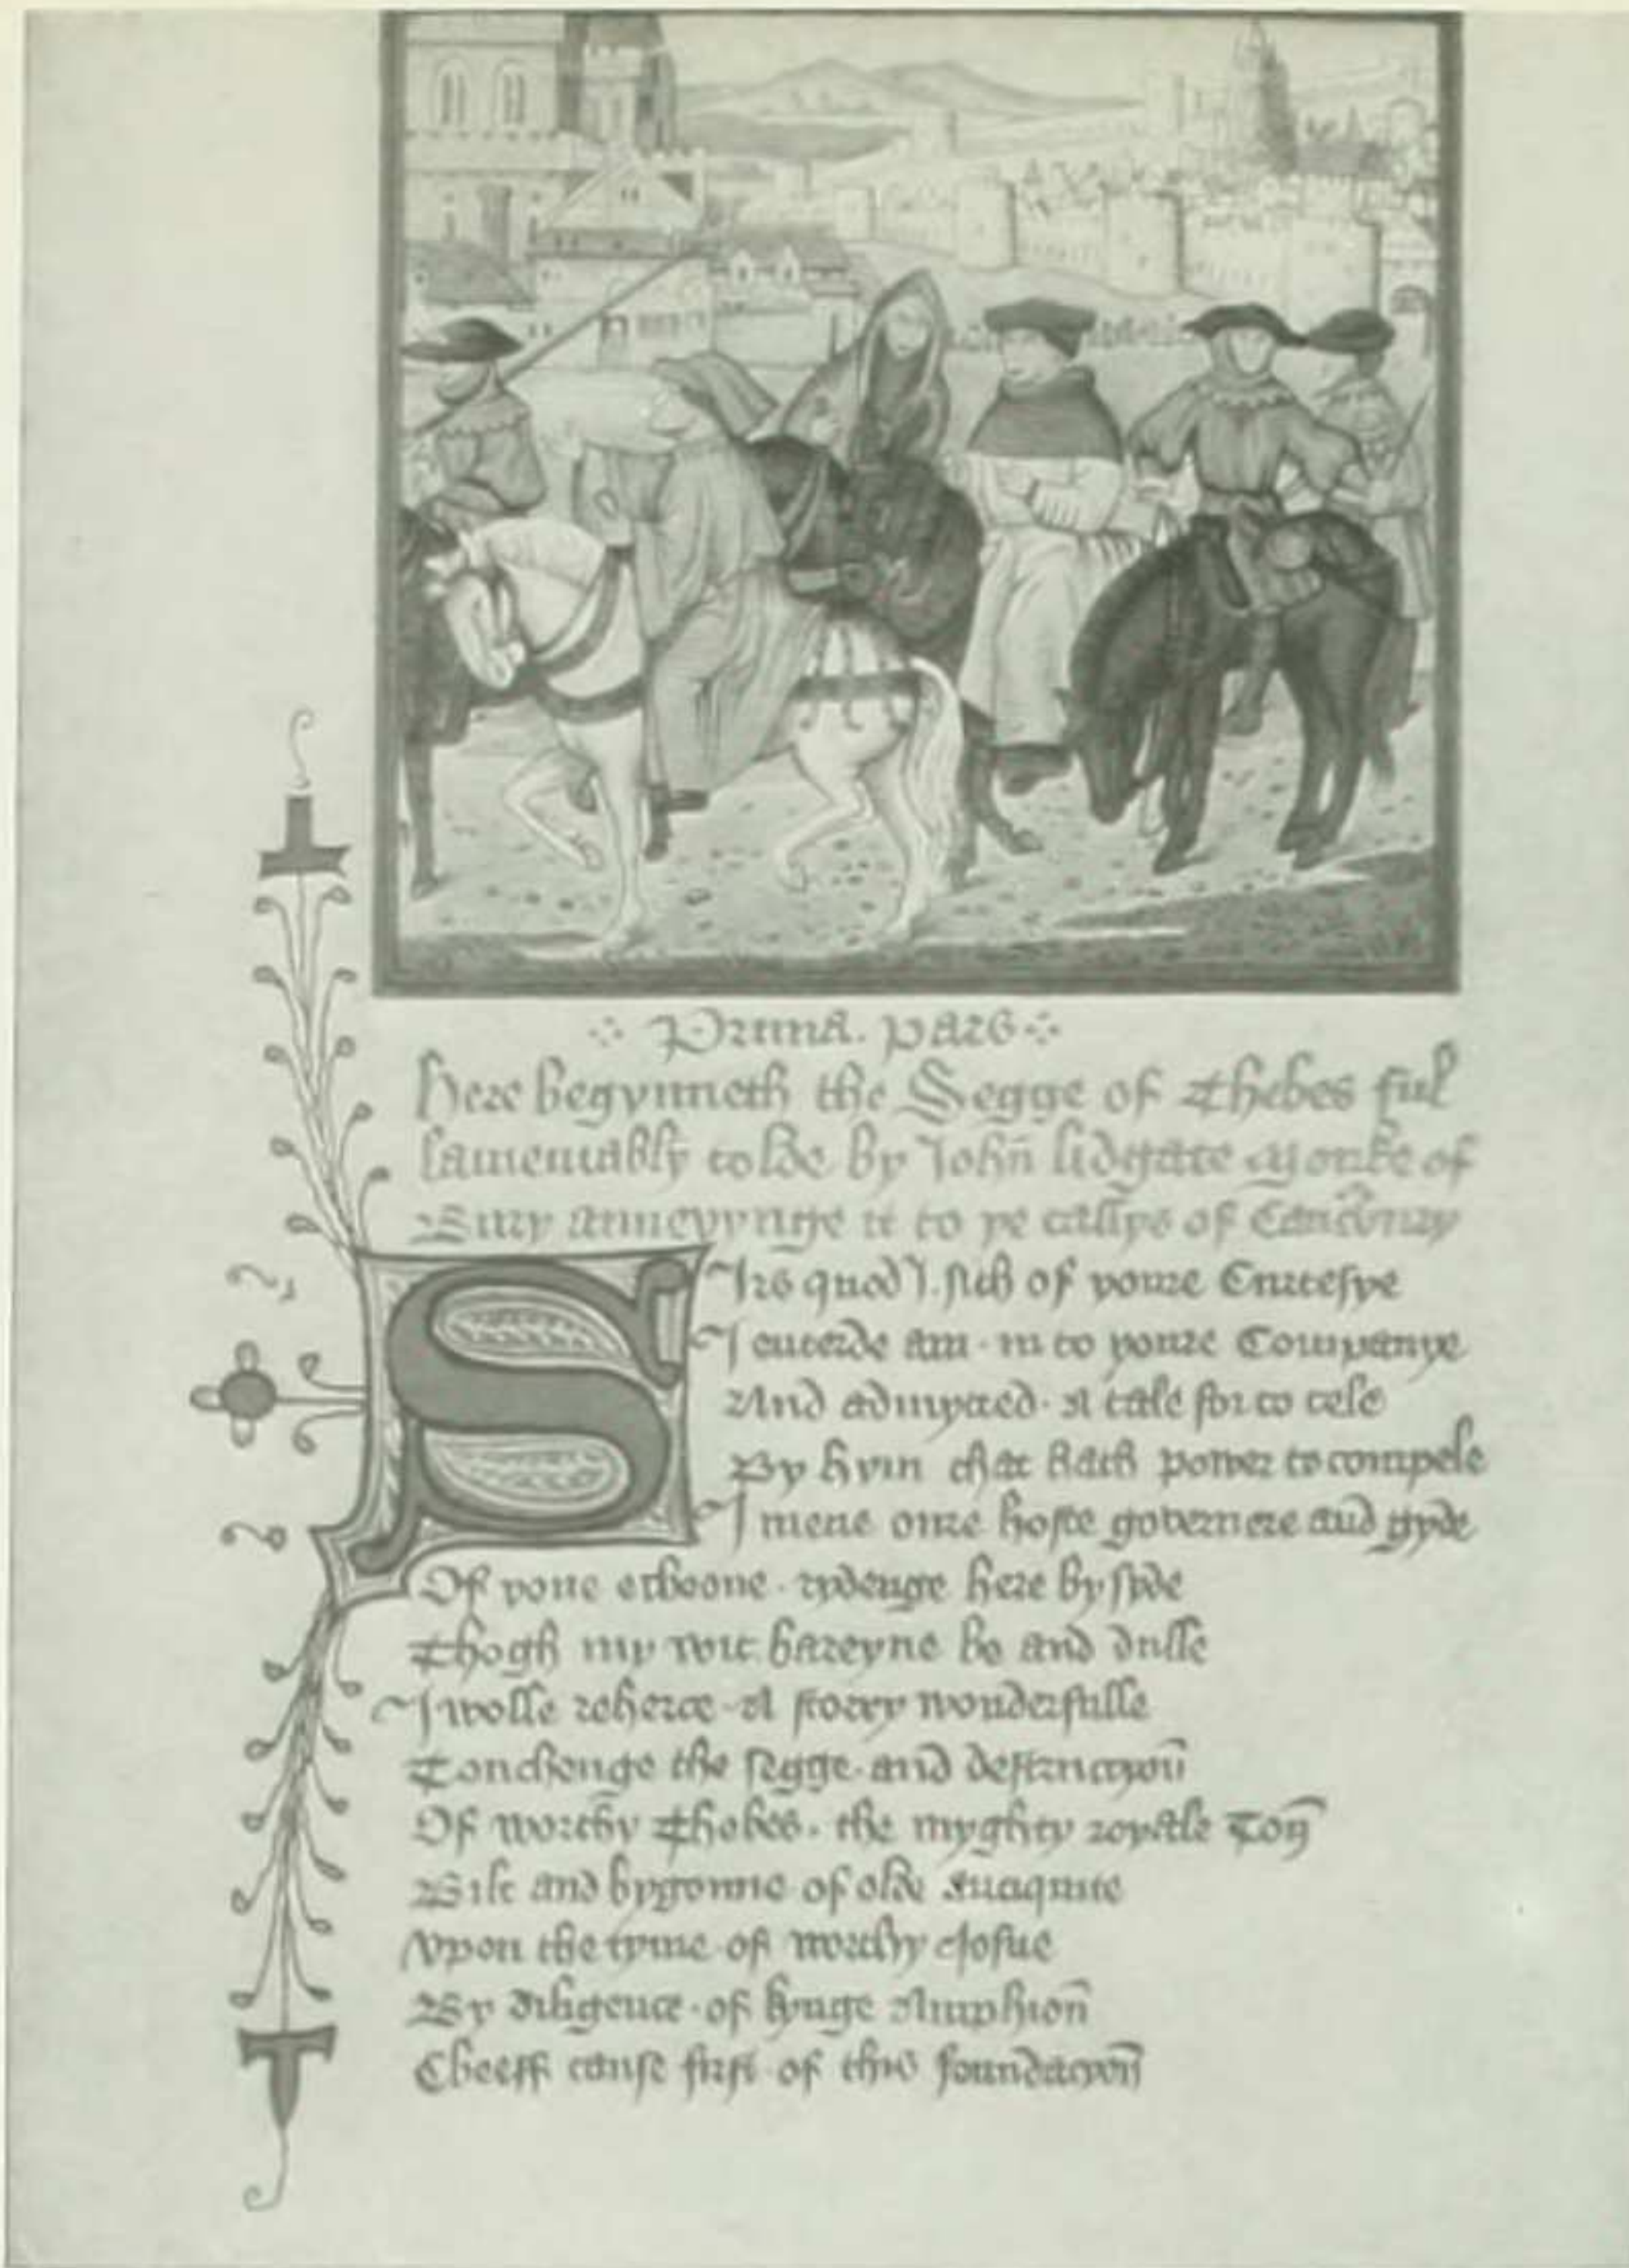 Prima. Pars
Here begynneth the Segge of Thebes ful
lamentably tolde by Johñ lidgate Monke of
Bury anneyynge it to ye tallys of Cantbury
Sirs quod I. sith of youre Curtesye
I enterde am. in to youre Companye
And admytted. A tale for to telle
By hym that hath power to compelle
I mene oure hoste governere and gyde
Of yone echeone. rydenge here by syde
Thogh my wit bareyne be and dulle
I wolle reherce. A story wonderfulle
Touchenge the segge. and destruccyoñ
Of worthy Thebes. the myghty royalle Toñ
Bilt and bygonne of olde Antiquite
Vpon the tyme of worthy Josue
By diligence. of kynge Amphioñ
Cheeff cause first. of this foundacyoñ